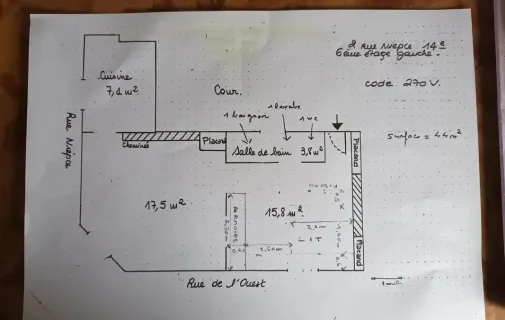 2 Rue Niepce 14e
6ème étage gauche.
code 270V.
Surface = 44 m²
Cuisine
7,1 m²
Cour.
1 baignoire
1 lavabo
1 wc
Cheminée
Placard
Salle de bain 3,8 m²
Placard
Rue Niepce
17,5 m²
15,8 m²
L I T
Placard
Rue de l'Ouest